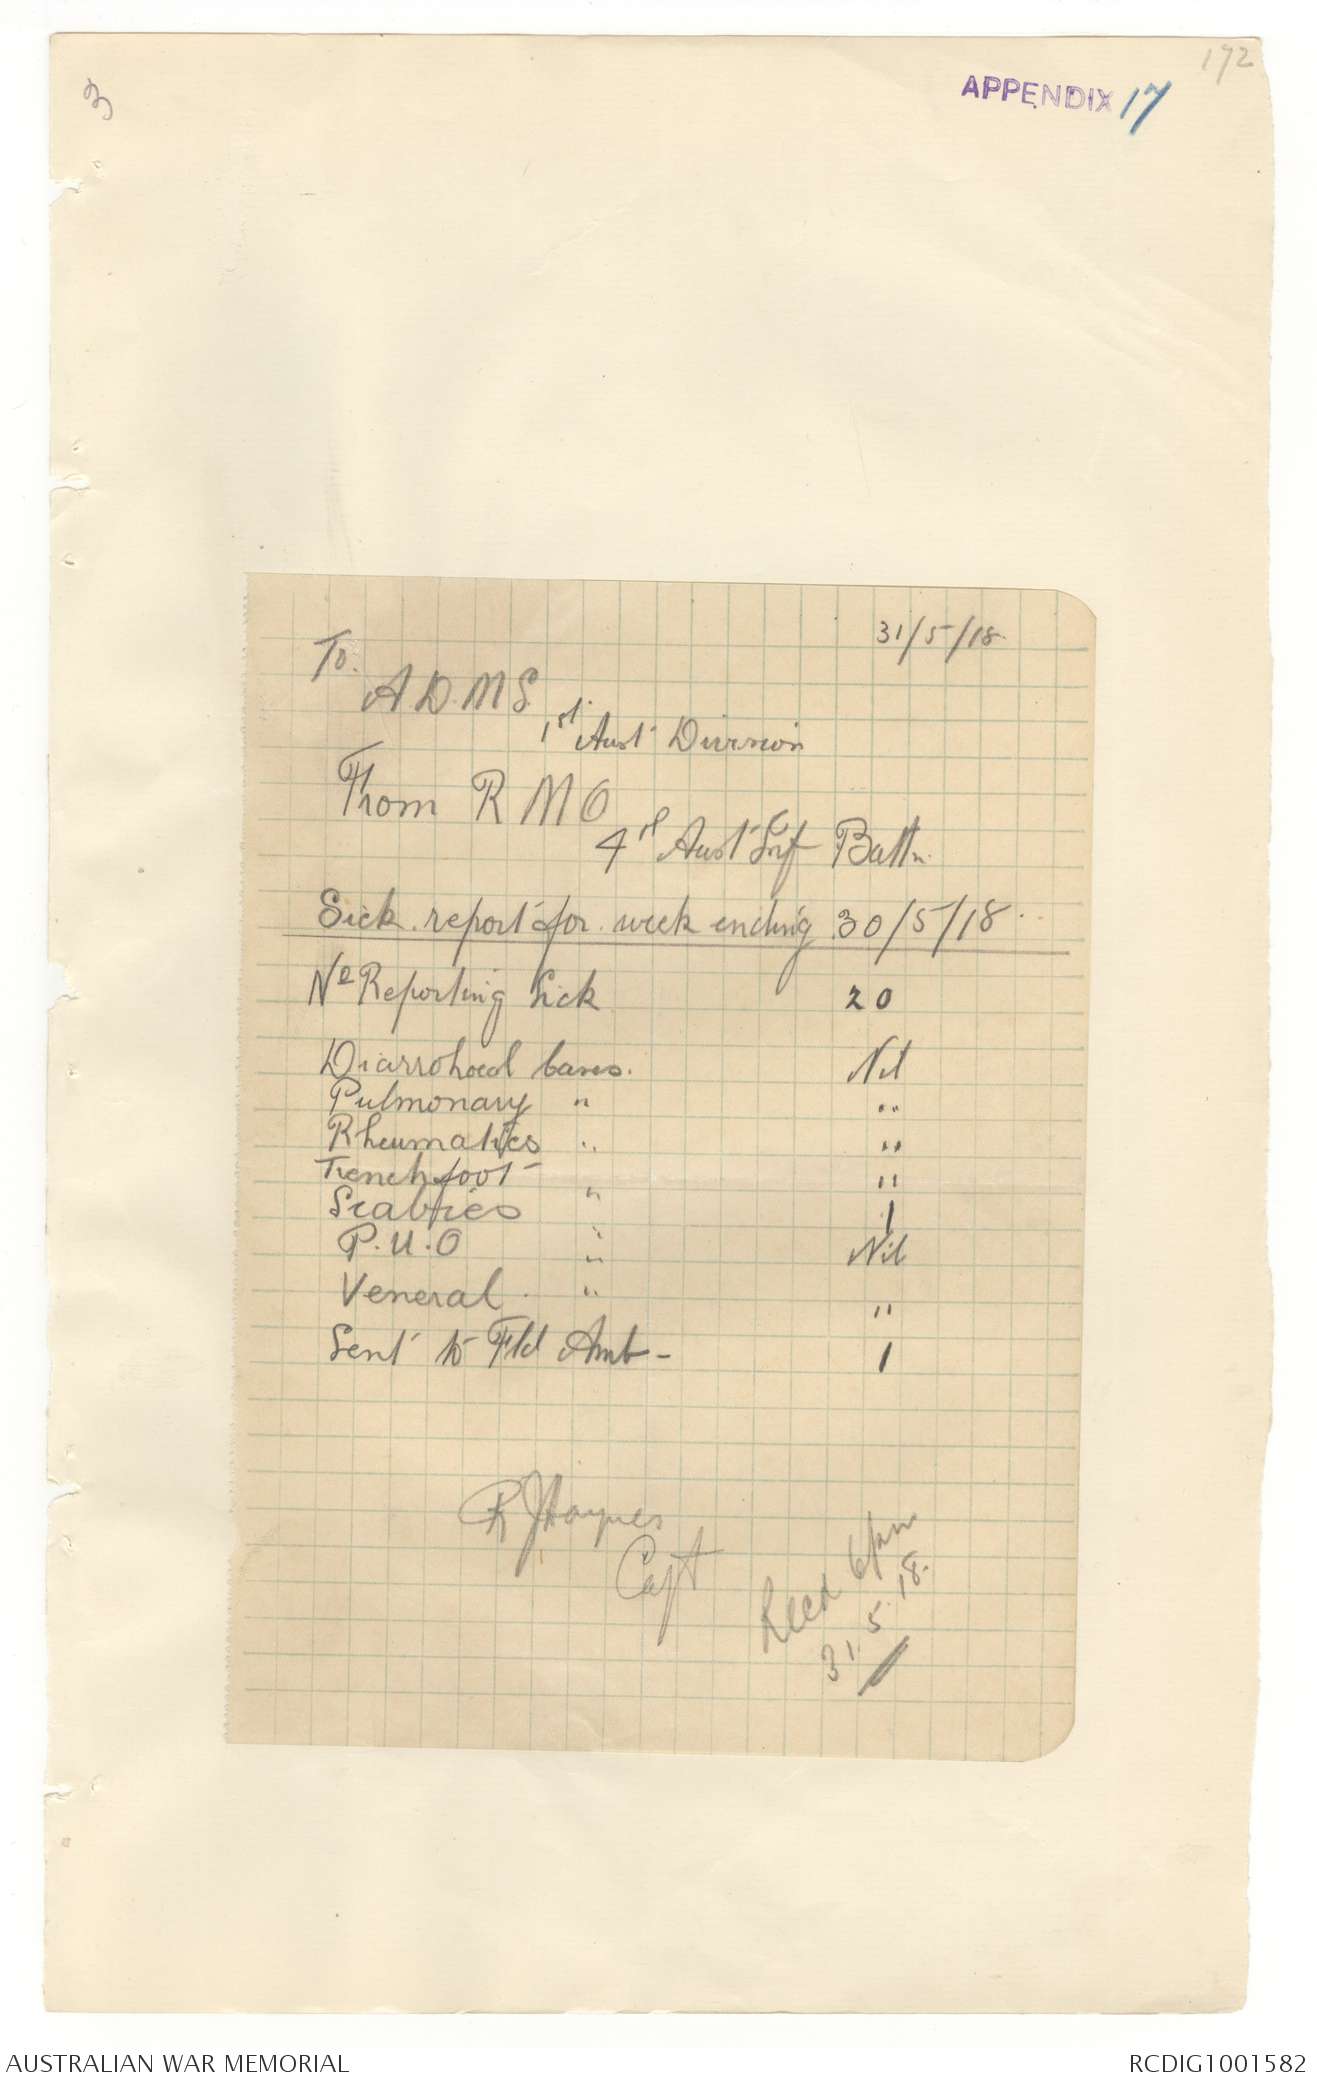 172
3
APPENDIX 17
31/5/18.
To.
A D. M S.
1st. Aust Division
From R M O
4th Aust Inf Battn.
Sick. report for. week ending 30/5/18.
No Reporting Sick 20
Diarrohoeal Cases. Nil
Pulmonary " "
Rheumatics " "
Trench foot "
Scabies " 1
P. U. O " Nil
Veneral. " "
Sent to Fld Amb - 1
R J Haynes
Capt
Recd 6pm
31. 5. 18.
AUSTRALIAN WAR MEMORIAL
RCDIG1001582